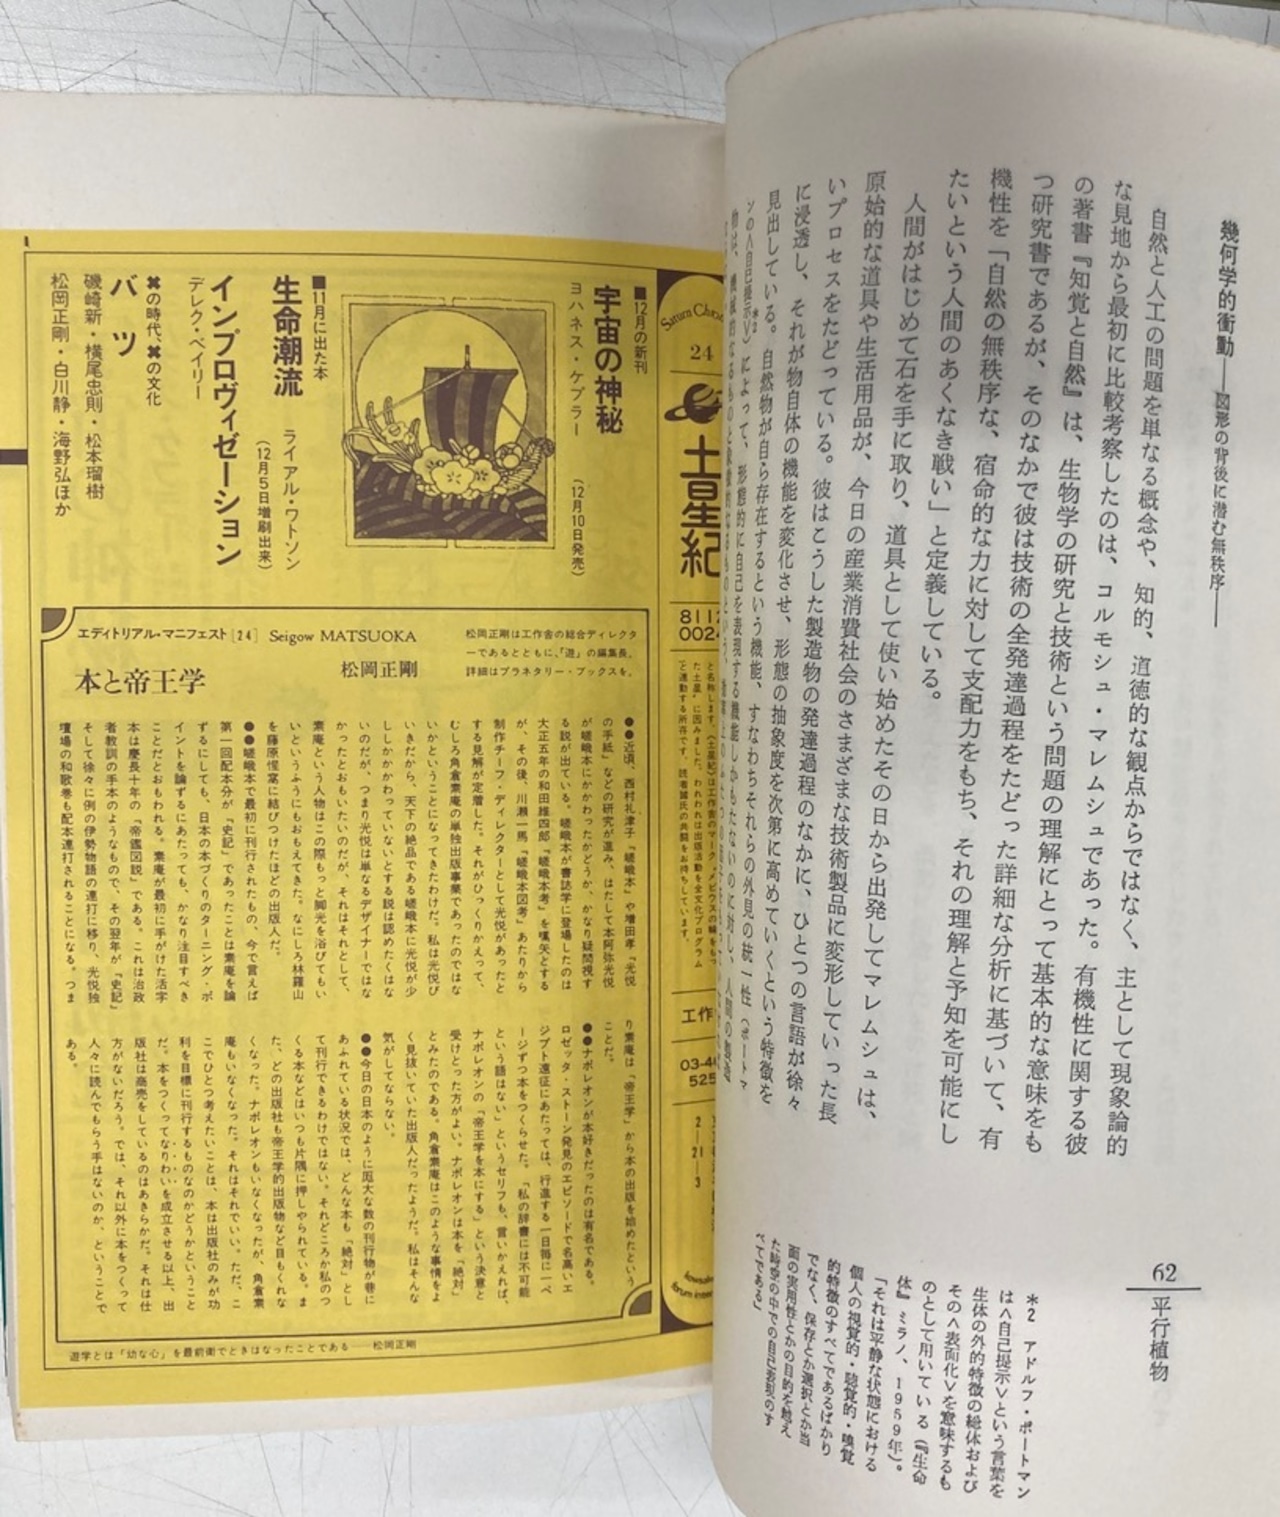 幾何学的衝動——図形の背後に潜む無秩序——
自然と人工の問題を単なる概念や、知的、道徳的な観点からではなく、主として現象論的
な見地から最初に比較考察したのは、コルモシュ・マレムシュであった。有機性に関する彼
の著書『知覚と自然』は、生物学の研究と技術という問題の理解にとって基本的な意味をも
つ研究書であるが、そのなかで彼は技術の全発達過程をたどった詳細な分析に基づいて、有
機性を「自然の無秩序な、宿命的な力に対して支配力をもち、それの理解と予知を可能にし
たいという人間のあくなき戦い」と定義している。
人間がはじめて石を手に取り、道具として使い始めたその日から出発してマレムシュは、
原始的な道具や生活用品が、今日の産業消費社会のさまざまな技術製品に変形していった長
いプロセスをたどっている。彼はこうした製造物の発達過程のなかに、ひとつの言語が徐々
に浸透し、それが物自体の機能を変化させ、形態の抽象度を次第に高めていくという特徴を
見出している。自然物が自ら存在するという機能、すなわちそれらの外見の統一性（ポートマ
ンの〈自己提示〉*2）によって、形態的に自己を表現する機能しかもたないのに対し、人間の
62 平行植物
*2 アドルフ・ポートマン
は〈自己提示〉という言葉を
生体の外的特徴の総体および
その〈表面化〉を意味するも
のとして用いている（『生命
体』ミラノ、1959年）。
「それは平静な状態における
個人の視覚的・聴覚的・嗅覚
的特徴のすべてであるばかり
でなく、保存とか選択とか当
面の実用性とかの目的を越え
た時空の中での自己表現のす
べてである」
Saturn
24
土星紀
8112
002
と名称します。《土星紀》は工作舎のマーク、メビウスの輪をもつ
た土星〟に因みました。われわれは出版活動を全文化プログラム
と連動する所存です。読者諸氏の共闘をお待ちしています。
工作
03-46
525
2-21-3
■12月の新刊
宇宙の神秘
ヨハネス・ケプラー
（12月10日発売）
■11月に出た本
生命潮流
ライアル・ワトソン
（12月5日増刷出来）
インプロヴィゼーション
デレク・ベイリー
✖の時代、✖の文化
バツ
磯崎新・横尾忠則・松本瑠樹
松岡正剛・白川静・海野弘ほか
エディトリアル・マニフェスト[24] Seigow MATSUOKA
本と帝王学
松岡正剛
松岡正剛は工作舎の総合ディレクタ
ーであるとともに、「遊」の編集長。
詳細はプラネタリー・ブックスを。
●●近頃、西村礼津子「嵯峨本」や増田孝「光悦
の手紙」などの研究が進み、はたして本阿弥光悦
が嵯峨本にかかわったかどうか、かなり疑問視す
る説が出ている。嵯峨本が書誌学に登場したのは
大正五年の和田維四郎「嵯峨本考」を嚆矢とする
が、その後、川瀬一馬「嵯峨本図考」あたりから
制作チーフ・ディレクターとして光悦があったと
する見解が定着した。それがひっくりかえって、
むしろ角倉素庵の単独出版事業であったのではな
いかということになってきたわけだ。私は光悦び
いきだから、天下の絶品である嵯峨本に光悦が少
ししかかかわっていないとする説は認めたくはな
いのだが、つまり光悦は単なるデザイナーではな
かったとおもいたいのだが、それはそれとして、
素庵という人物はこの際もっと脚光を浴びてもい
いというふうにもおもえてきた。なにしろ林羅山
を藤原惺窩に結びつけたほどの出版人だ。
●●嵯峨本で最初に刊行されたもの、今で言えば
第一回配本分が「史記」であったことは素庵を論
ずるにしても、日本の本づくりのターニング・ポ
イントを論ずるにあたっても、かなり注目すべき
ことだとおもわれる。素庵が最初に手がけた活字
本は慶長十年の「帝鑑図説」である。これは治政
者教訓の手本のようなもので、その翌年が「史記」
そして徐々に例の伊勢物語の連打に移り、光悦独
壇場の和歌巻も配本連打されることになる。つま
り素庵は「帝王学」から本の出版を始めたという
ことだ。
●●ナポレオンが本好きだったのは有名である。
ロゼッタ・ストーン発見のエピソードで名高いエ
ジプト遠征にあたっては、行進する一日毎に一ペ
ージずつ本をつくらせた。「私の辞書には不可能
という語はない」というセリフも、言いかえれば、
ナポレオンの「帝王学を本にする」という決意と
受けとった方がよい。ナポレオンは本を「絶対」
とみたのである。角倉素庵はこのような事情をよ
く見抜いていた出版人だったようだ。私はそんな
気がしてならない。
●●今日の日本のように厖大な数の刊行物が巷に
あふれている状況では、どんな本も「絶対」とし
て刊行できるわけではない。それどころか私のつ
くる本などはいつも片隅に押しやられている。ま
た、どの出版社も帝王学的出版物など目もくれな
くなった。ナポレオンもいなくなったが、角倉素
庵もいなくなった。それはそれでいい。ただ、こ
こでひとつ考えたいことは、本は出版社のみが功
利を目標に刊行するものなのかどうかということ
だ。本をつくってなりわいを成立させる以上、出
版社は商売をしているのはあきらかだ。それは仕
方がないだろう。では、それ以外に本をつくって
人々に読んでもらう手はないのか、ということで
ある。
遊学とは「幼な心」を最前衛でときはなったことである——松岡正剛